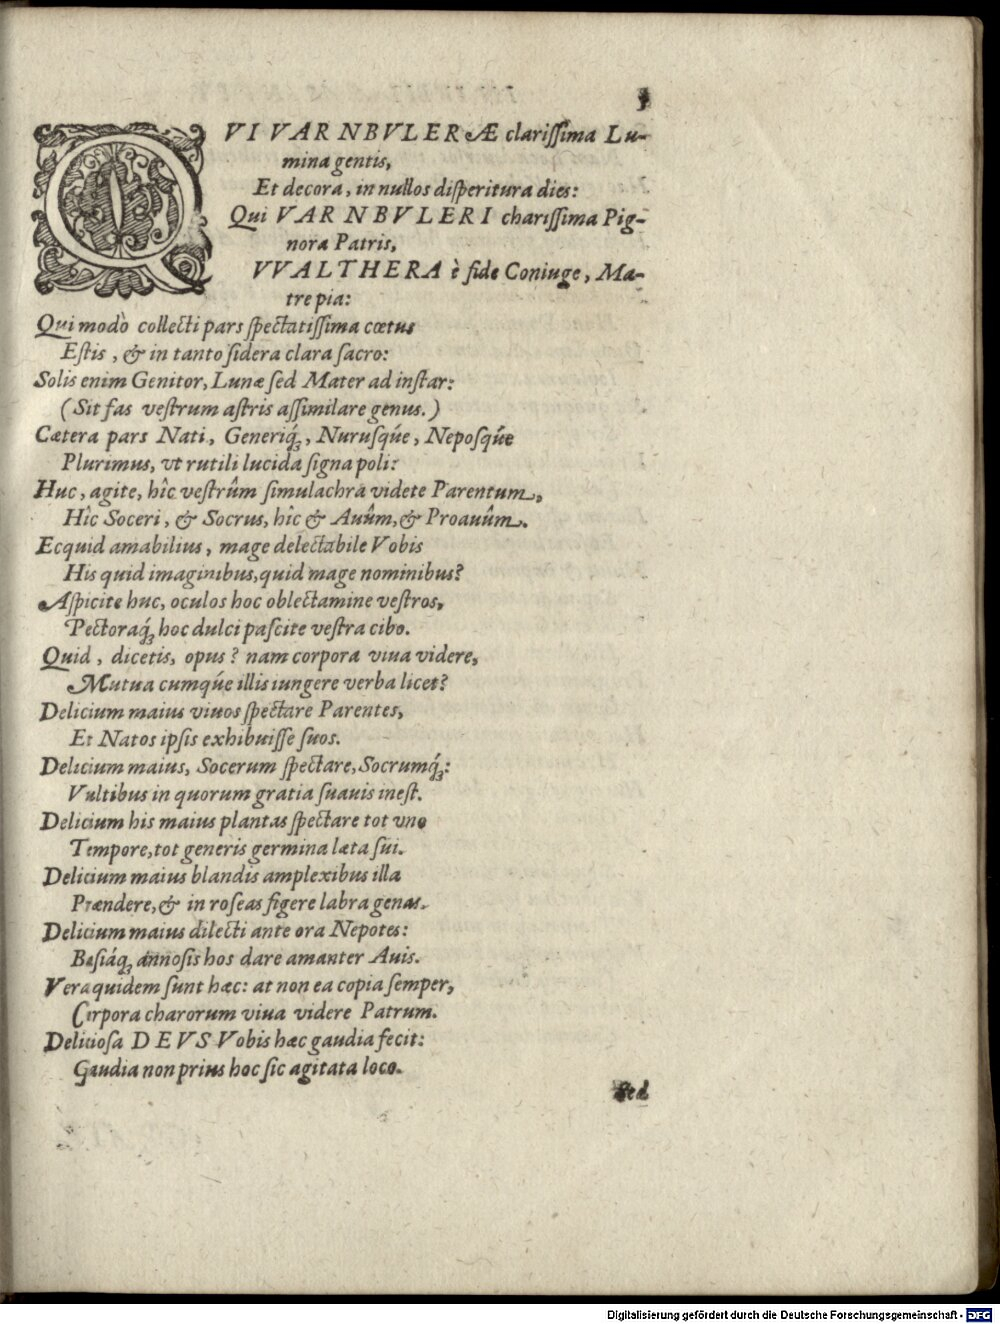 QVI VARNBVLERÆ clariſſima Lu-
mina gentis,
Et decora, in nullos diſperitura dies:
Qui VARNBVLERI chariſſima Pig-
nora Patris,
VVALTHERA è fide Coniuge, Ma-
tre pia:
Qui modò collecti pars ſpectatiſſima cœtus
Eſtis, & in tanto ſidera clara ſacro:
Solis enim Genitor, Lunæ ſed Mater ad inſtar:
(Sit fas veſtrum aſtris aſſimilare genus.)
Cætera pars Nati, Generiq́;, Nuruſq́ue, Nepoſq́ue
Plurimus, vt rutili lucida ſigna poli:
Huc, agite, hîc veſtrûm ſimulachra videte Parentum,
Hîc Soceri, & Socrus, hîc & Auûm, & Proauûm.
Ecquid amabilius, mage delectabile Vobis
His quid imaginibus, quid mage nominibus?
Aſpicite huc, oculos hoc oblectamine veſtros,
Pectoraq́; hoc dulci paſcite veſtra cibo.
Quid, dicetis, opus? nam corpora viua videre,
Mutua cumq́ue illis iungere verba licet?
Delicium maius viuos ſpectare Parentes,
Et Natos ipſis exhibuiſſe ſuos.
Delicium maius, Socerum ſpectare, Socrumq́;:
Vultibus in quorum gratia ſuauis ineſt.
Delicium his maius plantas ſpectare tot vno
Tempore, tot generis germina læta ſui.
Delicium maius blandis amplexibus illa
Prændere, & in roſeas figere labra genas.
Delicium maius dilecti ante ora Nepotes:
Baſiáq; annoſis hos dare amanter Auis.
Vera quidem ſunt hæc: at non ea copia ſemper,
Corpora charorum viua videre Patrum.
Delicioſa DEVS Vobis hæc gaudia fecit:
Gaudia non prius hoc ſic agitata loco.
Sed
Digitalisierung gefördert durch die Deutsche Forschungsgemeinschaft - DFG